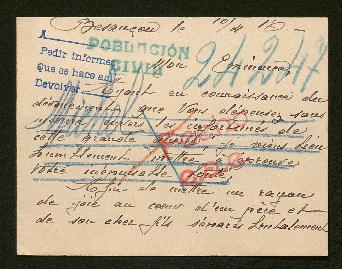 Besançon le 10/4 15
A
Pedir informes
Que se hace así
Devolver
POBLACIÓN
CIVIL
24247
Mon
Ayant eu connaissance du
dévouement que Vous dépensez sans
les infortunés de
cette grande guerre, je viens bien
humblement
votre inépuisable
Afin de mettre un rayon
de joie au cœur d'un père et
de son cher fils séparés brutalement